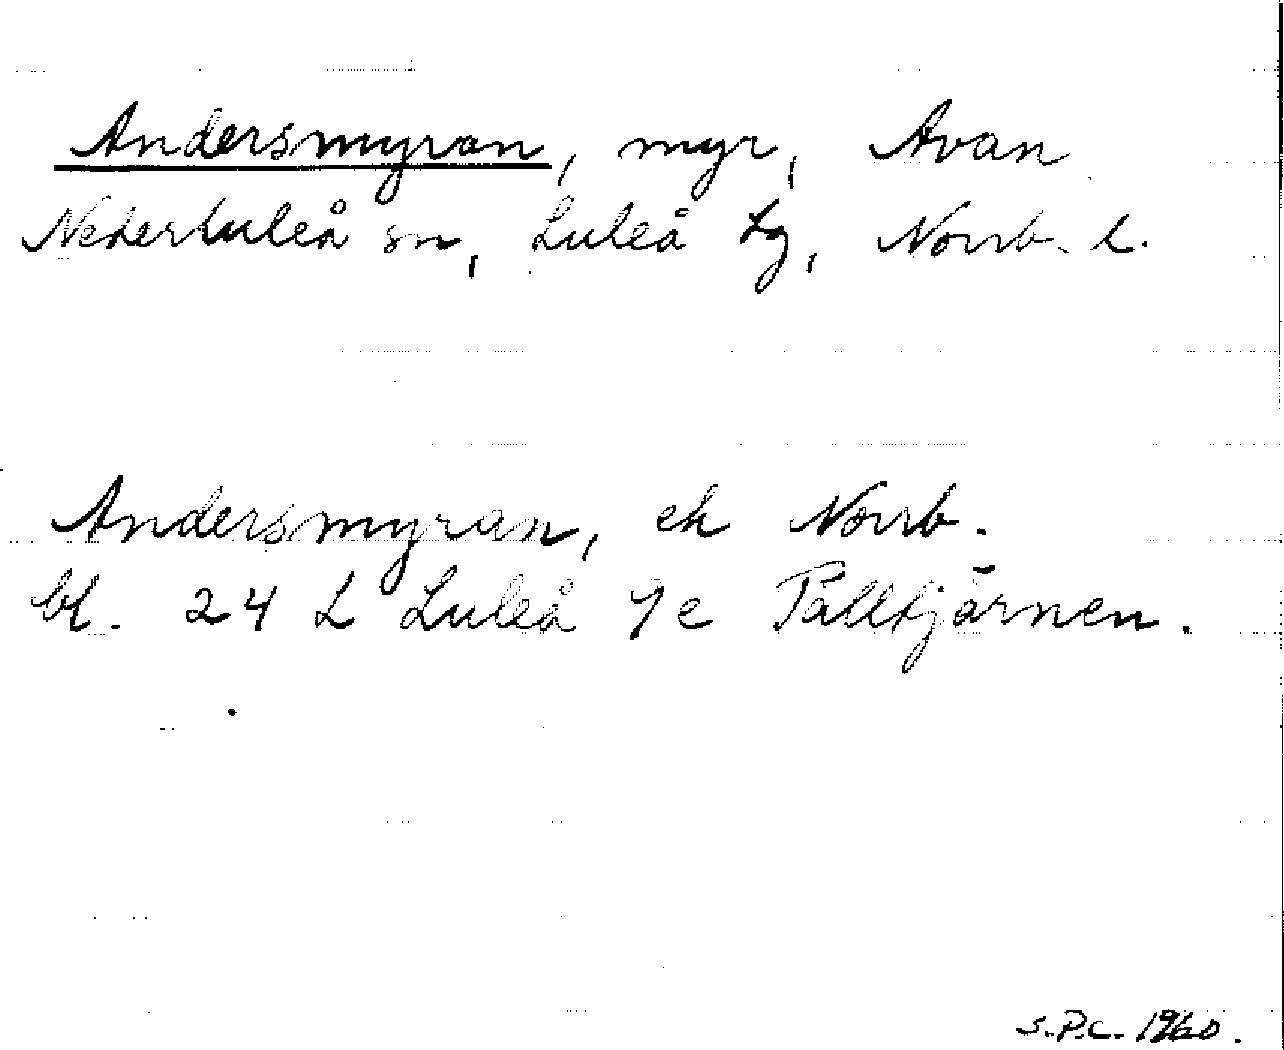 Andersmyran, myr, Avan
Nederluleå sn, Luleå tg, Norrb. l.
Andersmyran, ek Norrb.
bl. 24 L Luleå 9e Talltjärnen.
S.P.C. 1960.